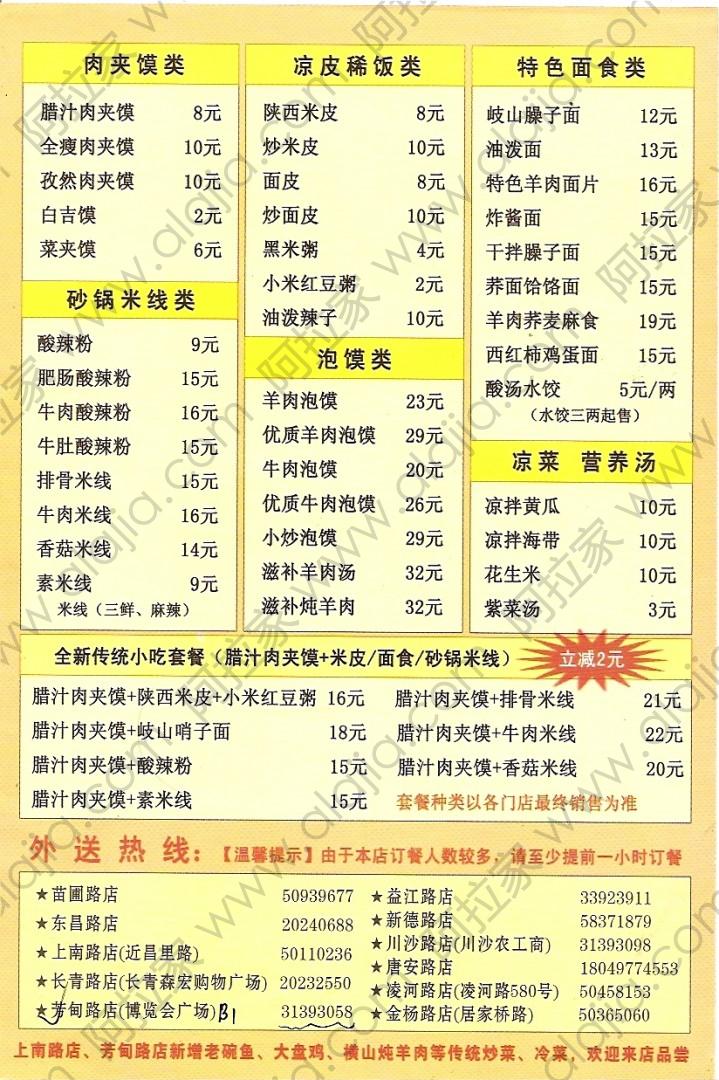 肉夹馍类
腊汁肉夹馍 8元
全瘦肉夹馍 10元
孜然肉夹馍 10元
白吉馍 2元
菜夹馍 6元
砂锅米线类
酸辣粉 9元
肥肠酸辣粉 15元
牛肉酸辣粉 16元
牛肚酸辣粉 15元
排骨米线 15元
牛肉米线 16元
香菇米线 14元
素米线 9元
米线（三鲜、麻辣）
凉皮稀饭类
陕西米皮 8元
炒米皮 10元
面皮 8元
炒面皮 10元
黑米粥 4元
小米红豆粥 2元
油泼辣子 10元
泡馍类
羊肉泡馍 23元
优质羊肉泡馍 29元
牛肉泡馍 20元
优质牛肉泡馍 26元
小炒泡馍 29元
滋补羊肉汤 32元
滋补炖羊肉 32元
特色面食类
岐山臊子面 12元
油泼面 13元
特色羊肉面片 16元
炸酱面 15元
干拌臊子面 15元
荞面饸饹面 15元
羊肉荞麦麻食 19元
西红柿鸡蛋面 15元
酸汤水饺 5元/两
（水饺三两起售）
凉菜 营养汤
凉拌黄瓜 10元
凉拌海带 10元
花生米 10元
紫菜汤 3元
全新传统小吃套餐（腊汁肉夹馍+米皮/面食/砂锅米线） 立减2元
腊汁肉夹馍+陕西米皮+小米红豆粥 16元
腊汁肉夹馍+岐山哨子面 18元
腊汁肉夹馍+酸辣粉 15元
腊汁肉夹馍+素米线 15元
腊汁肉夹馍+排骨米线 21元
腊汁肉夹馍+牛肉米线 22元
腊汁肉夹馍+香菇米线 20元
套餐种类以各门店最终销售为准
外送热线：【温馨提示】由于本店订餐人数较多，请至少提前一小时订餐
★苗圃路店 50939677
★东昌路店 20240688
★上南路店(近昌里路) 50110236
★长青路店(长青森宏购物广场) 20232550
★芳甸路店(博览会广场) B1 31393058
★益江路店 33923911
★新德路店 58371879
★川沙路店(川沙农工商) 31393098
★唐安路店 18049774553
★凌河路店(凌河路580号) 50458153
★金杨路店(居家桥路) 50365060
上南路店、芳甸路店新增老碗鱼、大盘鸡、横山炖羊肉等传统炒菜、冷菜，欢迎来店品尝
阿拉家 www.alajia.com